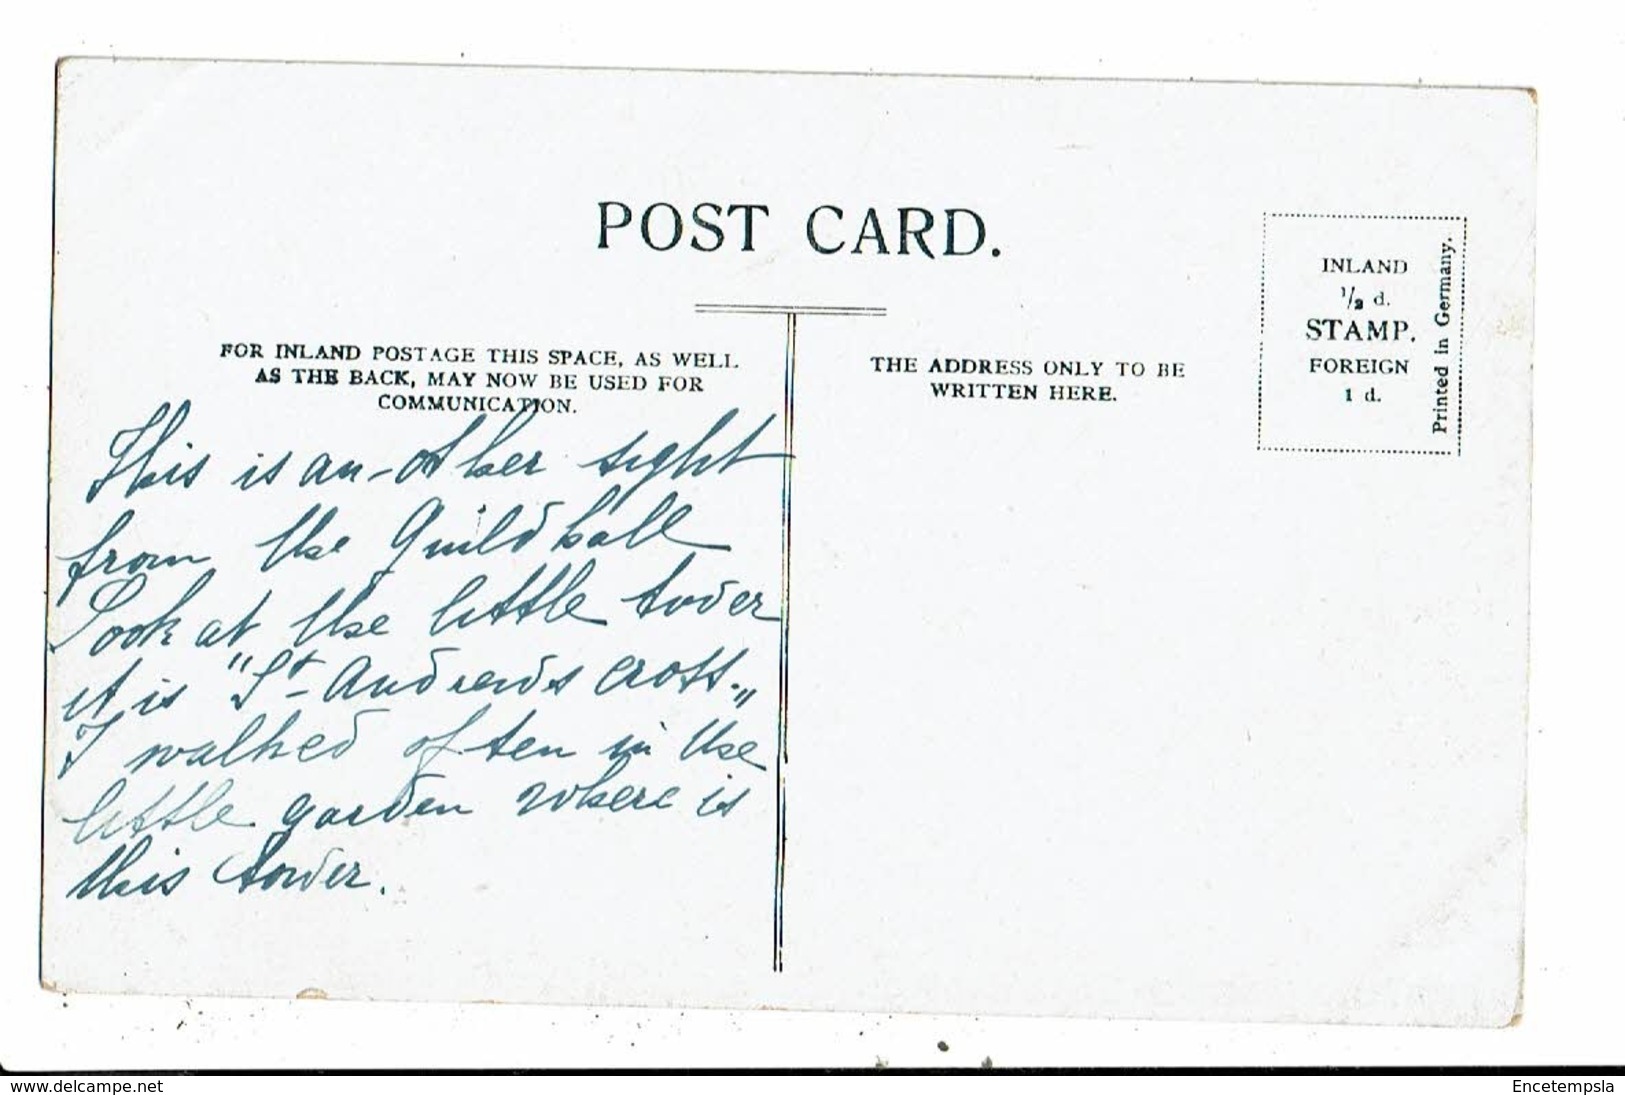 POST CARD.
FOR INLAND POSTAGE THIS SPACE, AS WELL
AS THE BACK, MAY NOW BE USED FOR
COMMUNICATION.
This is an-other sight
from the Guildhall
Look at the little tower
it is "St Andrews cross."
I walked often in the
little garden where is
this tower.
THE ADDRESS ONLY TO BE
WRITTEN HERE.
INLAND
1/2 d.
STAMP.
FOREIGN
1 d.
Printed in Germany.
www.delcampe.net
Encetempsla